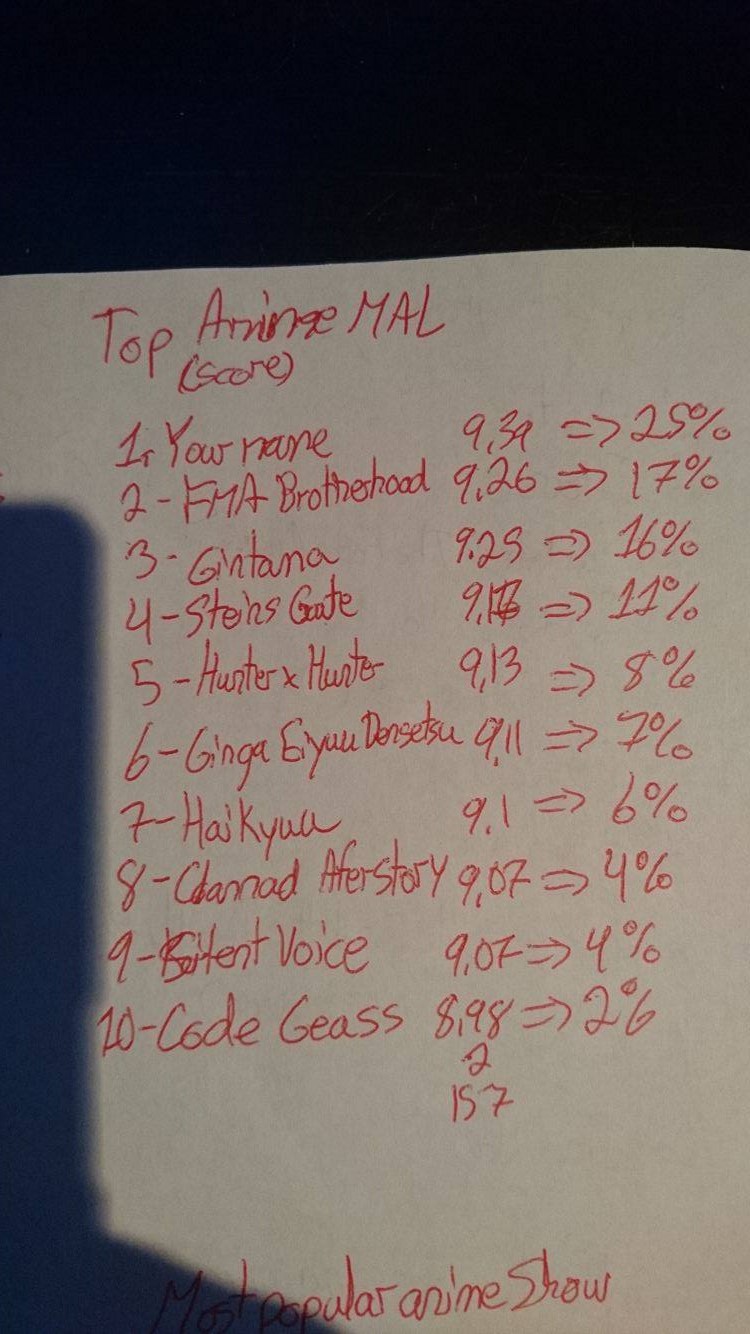 Top Anime MAL
(score)
1. Your name 9,39 => 25%
2- FMA Brotherhood 9,26 => 17%
3- Gintama 9.25 => 16%
4- Steins Gate => 11%
5- Hunter x Hunter 9,13 => 8%
6- Ginga Eiyuu Densetsu 9,11 => 7%
7- Haikyuu 9,1 => 6%
8- Clannad Afterstory 9,07 => 4%
9- Silent Voice 9,07 => 4%
10- Code Geass 8,98 => 2%
2
157
Most popular anime Show